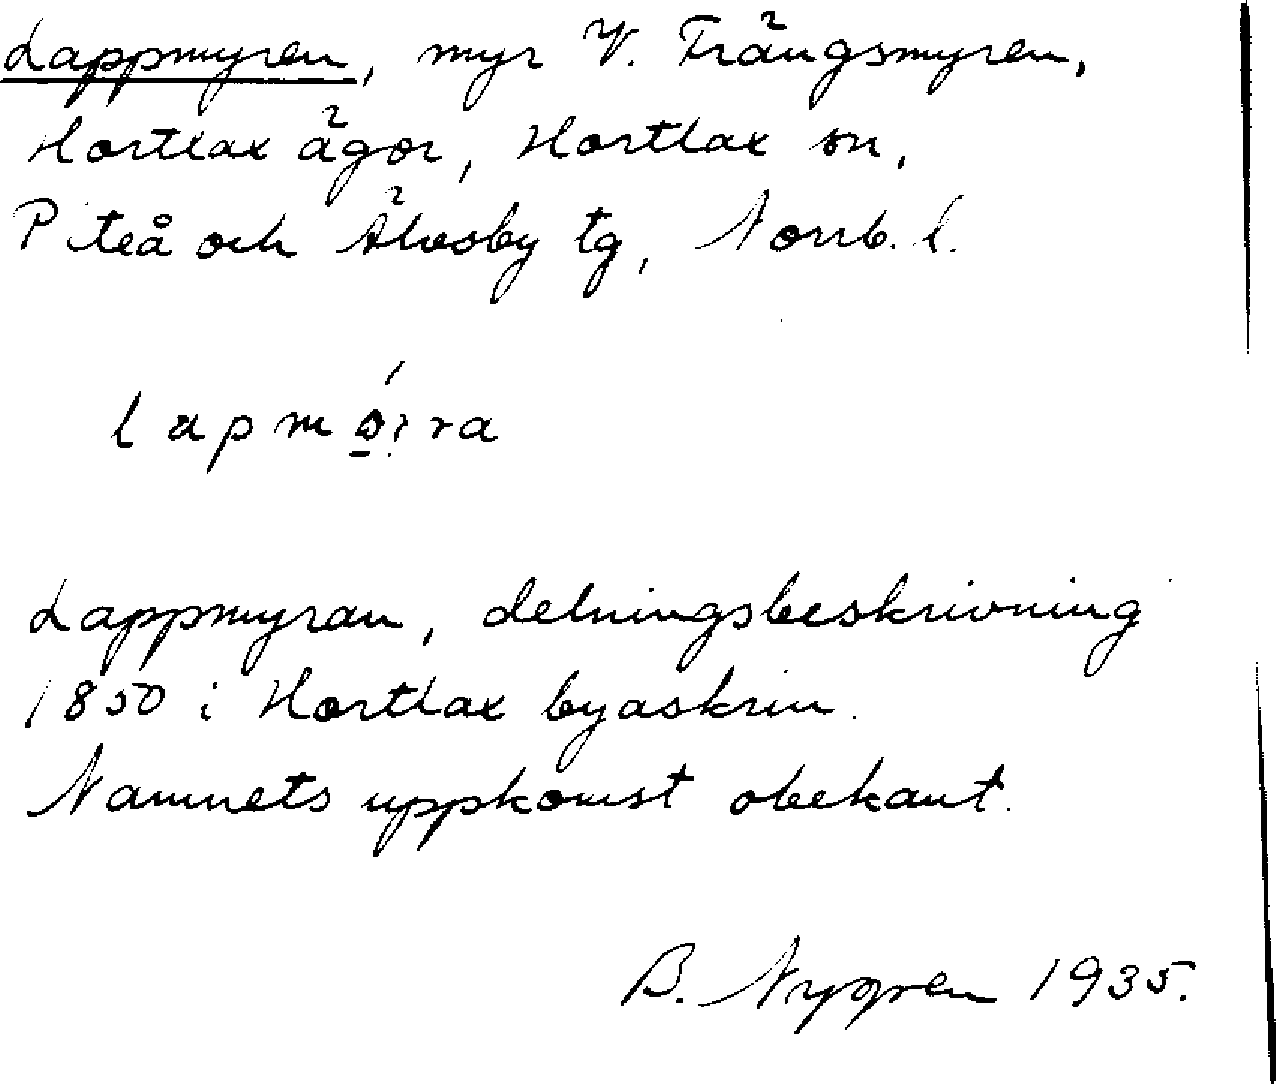 Lappmyren, myr V. Trångsmyren,
Hortlax ägor, Hortlax sn,
Piteå och Älvsby tg, Norrb. l.
Lappmyran, delningsbeskrivning
1850 i Hortlax byaskrin.
Namnets uppkomst obekant.
B. Nygren 1935.